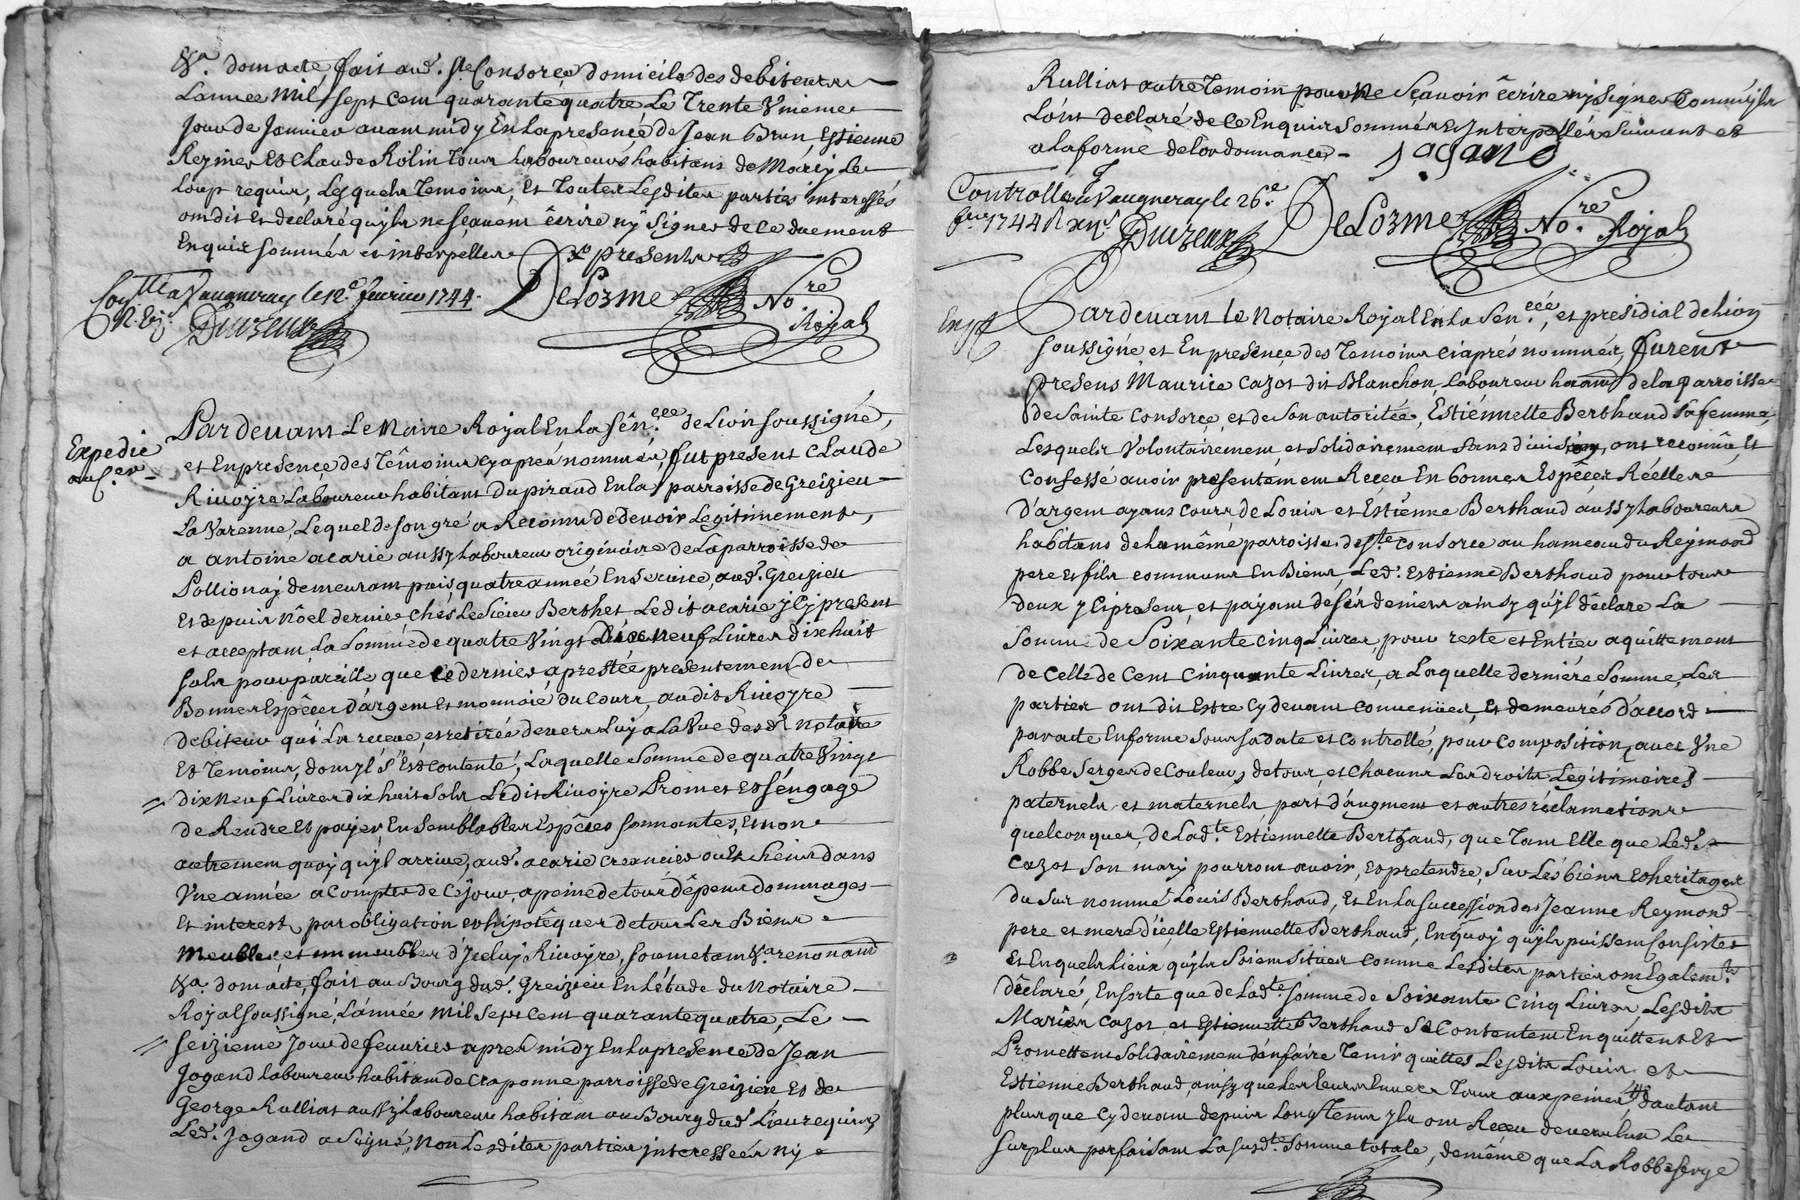 &a. dom acte, fait aud. Ste Consorce domicile des debiteurs
L'annee mil sept cent quarante quatre Le Trente Unieme
Jour de Janvier avant midy En la presence de Jean Brun, Estienne
Reynier et Claude Rolin tous Laboureurs habitans de Marcy Le
Loup requis, Lesquels Temoins, et Toutes Lesdites parties interessés
ont dit et declaré qu'ils ne sçavent écrire ny signer de ce duement
Enquis sommés et interpellés
DeLorme No.re Royal
Con.llé a Vaugneray le 12.e fevrier 1744.
Expedie
au C.er
Pardevant Le No.aire Royal En la Sén.ece de Lion soussigné,
et En presence des Témoins cy aprés nommés, fut present Claude
Rivoyre Laboureur habitant du piraud En la parroisse de Greizieu
La Varenne, Lequel de son gré a Reconnu de devoir Legitimement,
a antoine acarie aussy Laboureur originaire de La parroisse de
Pollionay demeurant puis quatre anneé En service, aud. Greizieu
Et depuis Nôel dernier chés Le Sieur Berthet Ledit acarie icy present
et acceptant La Somme de quatre Vingt Dix Neuf Livres dixhuit
Sols pour pareille que ce dernier a prestée presentement de
Bonnes Espéces D'argent et monnoié du Cours, audit Rivoyre
debiteur qui La receue, et retirée devers Luy a La Vue desd. notaire
Et Temoins, dont il s'Est contenté, Laquelle Somme de quatre Vingt
dix Neuf Livres dixhuit sols Ledit Rivoyre Promet Et s'éngage
de Rendre Et payer En semblables Espéces sonnantes, et non
autrement quoy qu'yl arrive, aud. acarie creancier ou Es siens dans
Une année a Compter de Cejour, a peine de tous dépens dommages
Et interest, par obligation et hipotéques de tous Les Biens
Meubles et immeubles d'Jceluy Rivoyre, soumetant &a. renonçant
&a. dont acte, fait au Bourg dud. Greizieu En L'étude du Notaire
Royal soussigné, L'année mil Sept Cent quarante quatre, Le
seizieme jour de fevrier apres midy En la presence de Jean
Jogand laboureur habitant de Craponne parroisse de Greizieu Et de
George Rulliat aussy Laboureur habitant au Bourg dud. Lieu requis
Led. Jogand a Signé, Non Lesdites parties jnteresseés Ny
Rulliat autre Temoin pour Ne Sçavoir écrire ny signer Comm'ils
L'ont declaré de ce Enquis Sommés et Interpellés Suivant et
a la forme de L'ordonnance
Jogand
Controllé a Vaugneray le 26.e
1744
DeLorme No.re Royal
Pardevant Le Notaire Royal En La Sen.ecé, et presidial de Lion
soussigné et En presence des Temoins ci aprés nommés, furent
presens Maurice Cazot dit Blanchon Laboureur habitant de la parroisse
de Sainte Consorce, et de son autoritée, Estiennette Berthaud Sa femme,
Lesquels Volontairement, et Solidairement Sans division, ont reconnû, Et
Confessé avoir presentement Receu En bonnes Espêces Réelles
D'argent ayans Cours de Louis et Estienne Berthaud aussy Laboureurs
habitans de la même parroisse de Ste Consorce au hameau du Reymond
pere et fils communs En Biens, Led. Estienne Berthaud pour tous
deux ycipresent, et payant de sés deniers ainsy qu'yl déclare La
Somme de Soixante cinq Livres, pour reste et Entier aquittement
de Celle de Cent Cinquante Livres, a Laquelle derniére Somme, Les
parties ont dit Estre cy devant convenuës, Et demeurés d'accord
par acte En forme Sous sa date et Controllé, pour Composition, avec Une
Robbe Serge de Couleur, de tous et chacuns Les droits Legitimaires
paternels et maternels, part d'augment et autres réclamations
quelconques, de Lad.te Estiennette Berthaud, que tant Elle que Led.
Cazot Son mary pourront avoir, Et pretendre, Sur Lés biens Et heritages
du Sus nommé Louis Berthaud, Et En La Succession de Jeanne Reymond
pere et mere d'icelle Estiennette Berthaud, En quoy qu'yls puissent Consister
Et En quels Lieux qu'yls Soient Situés comme Lesdites parties ont Egalem.t
déclaré, En sorte que de Lad.te Somme de Soixante Cinq Livres, Lesdits
Mariés Cazot et Estiennette Berthaud Se Contentent En quittent Et
Promettent Solidairement d'en faire Tenir quittes Lesdits Louis et
Estienne Berthaud, ainsy que Les Leurs Envers Tous aux peines d'autant
plus que cy devant depuis Long Tems yls ont Receu devers Eux Le
surplus parfaisant La susd.te Somme totale, de même que La Robbe serge